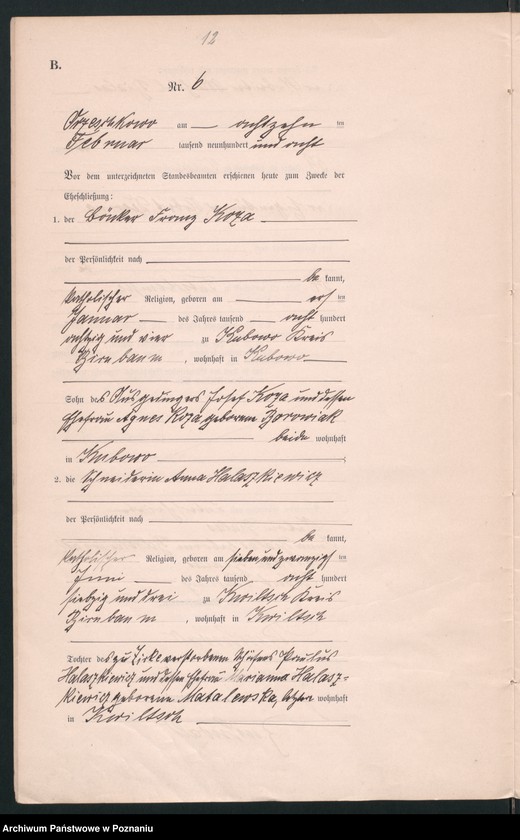 12
B.
Nr. 6
Orzeschkowo am — achtzehn ten
Februar tausend neunhundert und acht
Vor dem unterzeichneten Standesbeamten erschienen heute zum Zwecke der
Eheschließung:
1. der Bäcker Franz Koza
der Persönlichkeit nach
be kannt,
katholischer Religion, geboren am ersten
Januar des Jahres tausend acht hundert
achtzig und vier zu Kubowo Kreis
Birnbaum, wohnhaft in Kubowo
Sohn des Ausgedingers Josef Koza und dessen
Ehefrau Agnes Koza geborene Borowiak
beide wohnhaft
in Kubowo;
2. die Schneiderin Anna Halaszkiewicz
der Persönlichkeit nach
be kannt,
katholischer Religion, geboren am siebenundzwanzigsten
Juni des Jahres tausend acht hundert
siebzig und drei zu Kwiltsch Kreis
Birnbaum, wohnhaft in Kwiltsch
Tochter des zu Zirke verstorbenen Schäfers Paulus
Halaszkiewicz und dessen Ehefrau Marianna Halasz-
kiewicz geborene Matalewska, letztere wohnhaft
in Kwiltsch
Archiwum Państwowe w Poznaniu